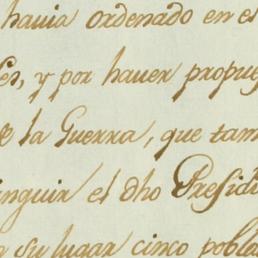 havia ordenado en es
es, y por haver propue
e la Guerra, que tam
inguir el dho Presidi
su lugar cinco pobla